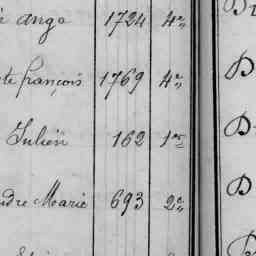 ange 1724 4e
te françois 1769 4e
Julien 162 1er
ndre Marie 693 2e